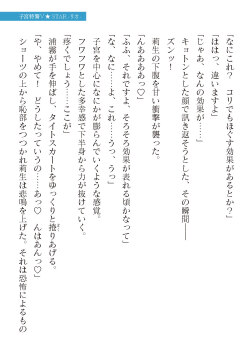 「なにこれ？　コリでもほぐす効果があるとか？」
「ははっ、違いますよ」
「じゃあ、なんの効果が……」
キョトンとした顔で訊き返そうとした、その瞬間──
ズンッ！
莉生の下腹を甘い衝撃が襲った。
「んああああっ♡」
「ふふ、それですよ、そろそろ効果が表れる頃かなって」
「な、なに……よ、これ……うっ、うっ」
子宮を中心になにかが膨らんでいくような感覚。
フワフワとした多幸感で下半身から力が抜けていく。
「疼くでしょう……ここが」
浦霧が手を伸ばし、タイトスカートをゆっくりと捲りあげる。
「や、やめて！　どうしたっていうの……あっ♡　んはあんっ♡」
ショーツの上から恥部をつつかれ莉生は悲鳴を上げた。それは恐怖からくるもの